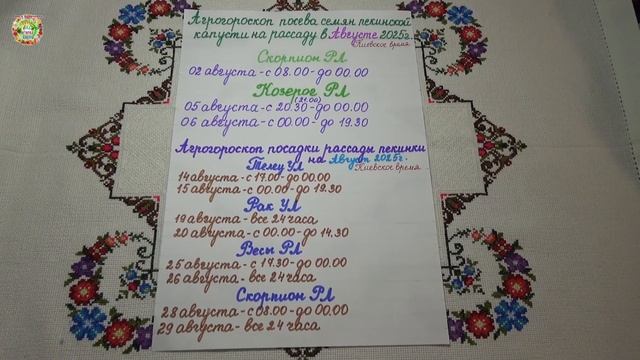 Агрогороскоп посева семян пекинской
капусты на рассаду в Августе 2025г.
Киевское время
Скорпион РЛ
02 августа - с 08.00 - до 00.00
Козерог РЛ
(21.00)
05 августа - с 20.30 - до 00.00
06 августа - с 00.00 - до 19.30
Агрогороскоп посадки рассады пекинки
на Август 2025г.
Телец УЛ
Киевское время
14 августа - с 17.00 - до 00.00
15 августа - с 00.00 - до 19.30
Рак УЛ
19 августа - все 24 часа
20 августа - с 00.00 - до 14.30
Весы РЛ
25 августа - с 17.30 - до 00.00
26 августа - все 24 часа
Скорпион РЛ
28 августа - с 08.00 - до 00.00
29 августа - все 24 часа